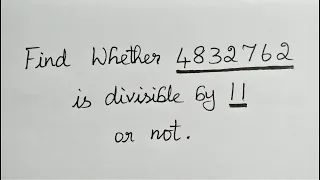 Find Whether 4832762
is divisible by 11
or not.